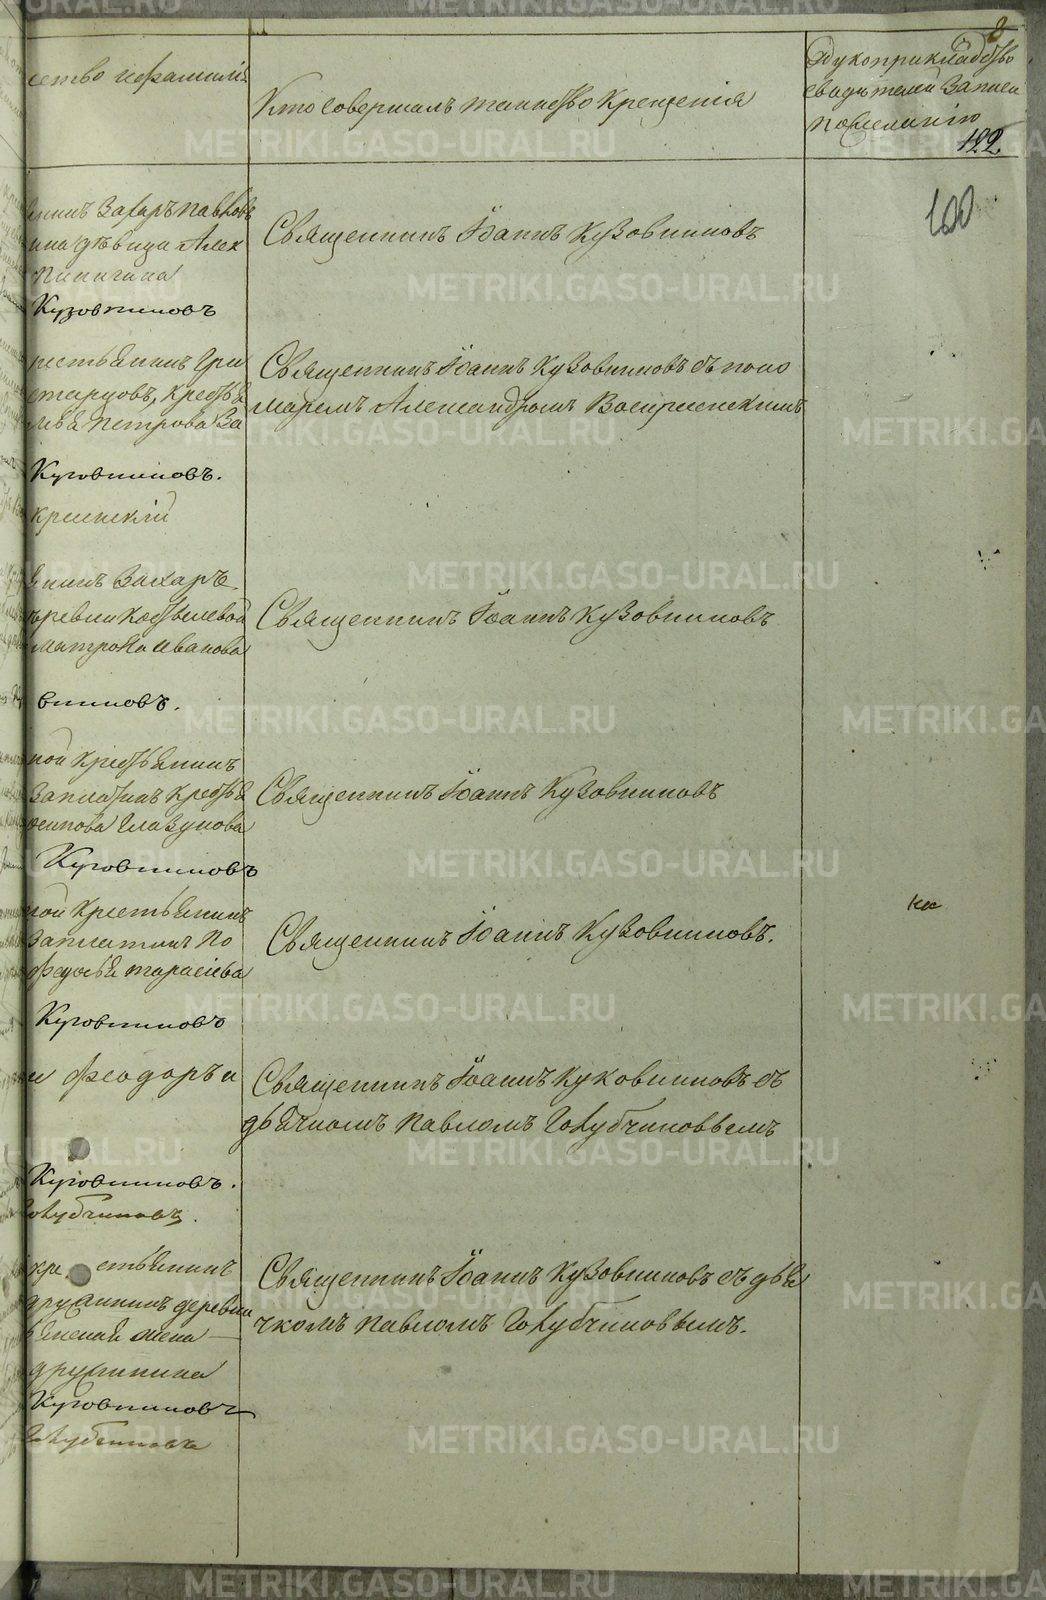 ство и фамилія
Кто совершалъ таинство крещенія
Рукоприкладство
свидѣтелей записи
по желанію
122.
100
Захаръ Павловъ
дѣвица Алек
Пинигина
Кузовниковъ
Священникъ Іоаннъ Кузовниковъ
рестьянинъ Гри
Старцовъ, крестья
Петрова За
Кузовниковъ.
кресенскій
Священникъ Іоаннъ Кузовниковъ съ поно
маремъ Александромъ Воскресенскимъ
янинъ Захаръ
деревни Костылевой
Матрона Иванова
вниковъ.
Священникъ Іоаннъ Кузовниковъ
ной крестьянинъ
Заплатинъ крестья
осипова Глазунова
Кузовниковъ
Священникъ Іоаннъ Кузовниковъ
ной крестьянинъ
Заплатинъ По
Федосья Тарасіева
Кузовниковъ
Священникъ Іоаннъ Кузовниковъ.
и Феодоръ и
Кузовниковъ.
Голубчиковъ.
Священникъ Іоаннъ Кузовниковъ съ
дьячкомъ Павломъ Голубчиковымъ
крестьянинъ
Дружининъ деревни
жена
Дружинина
Кузовниковъ
Голубчиковъ
Священникъ Іоаннъ Кузовниковъ съ дья
чкомъ Павломъ Голубчиковымъ.
METRIKI.GASO-URAL.RU